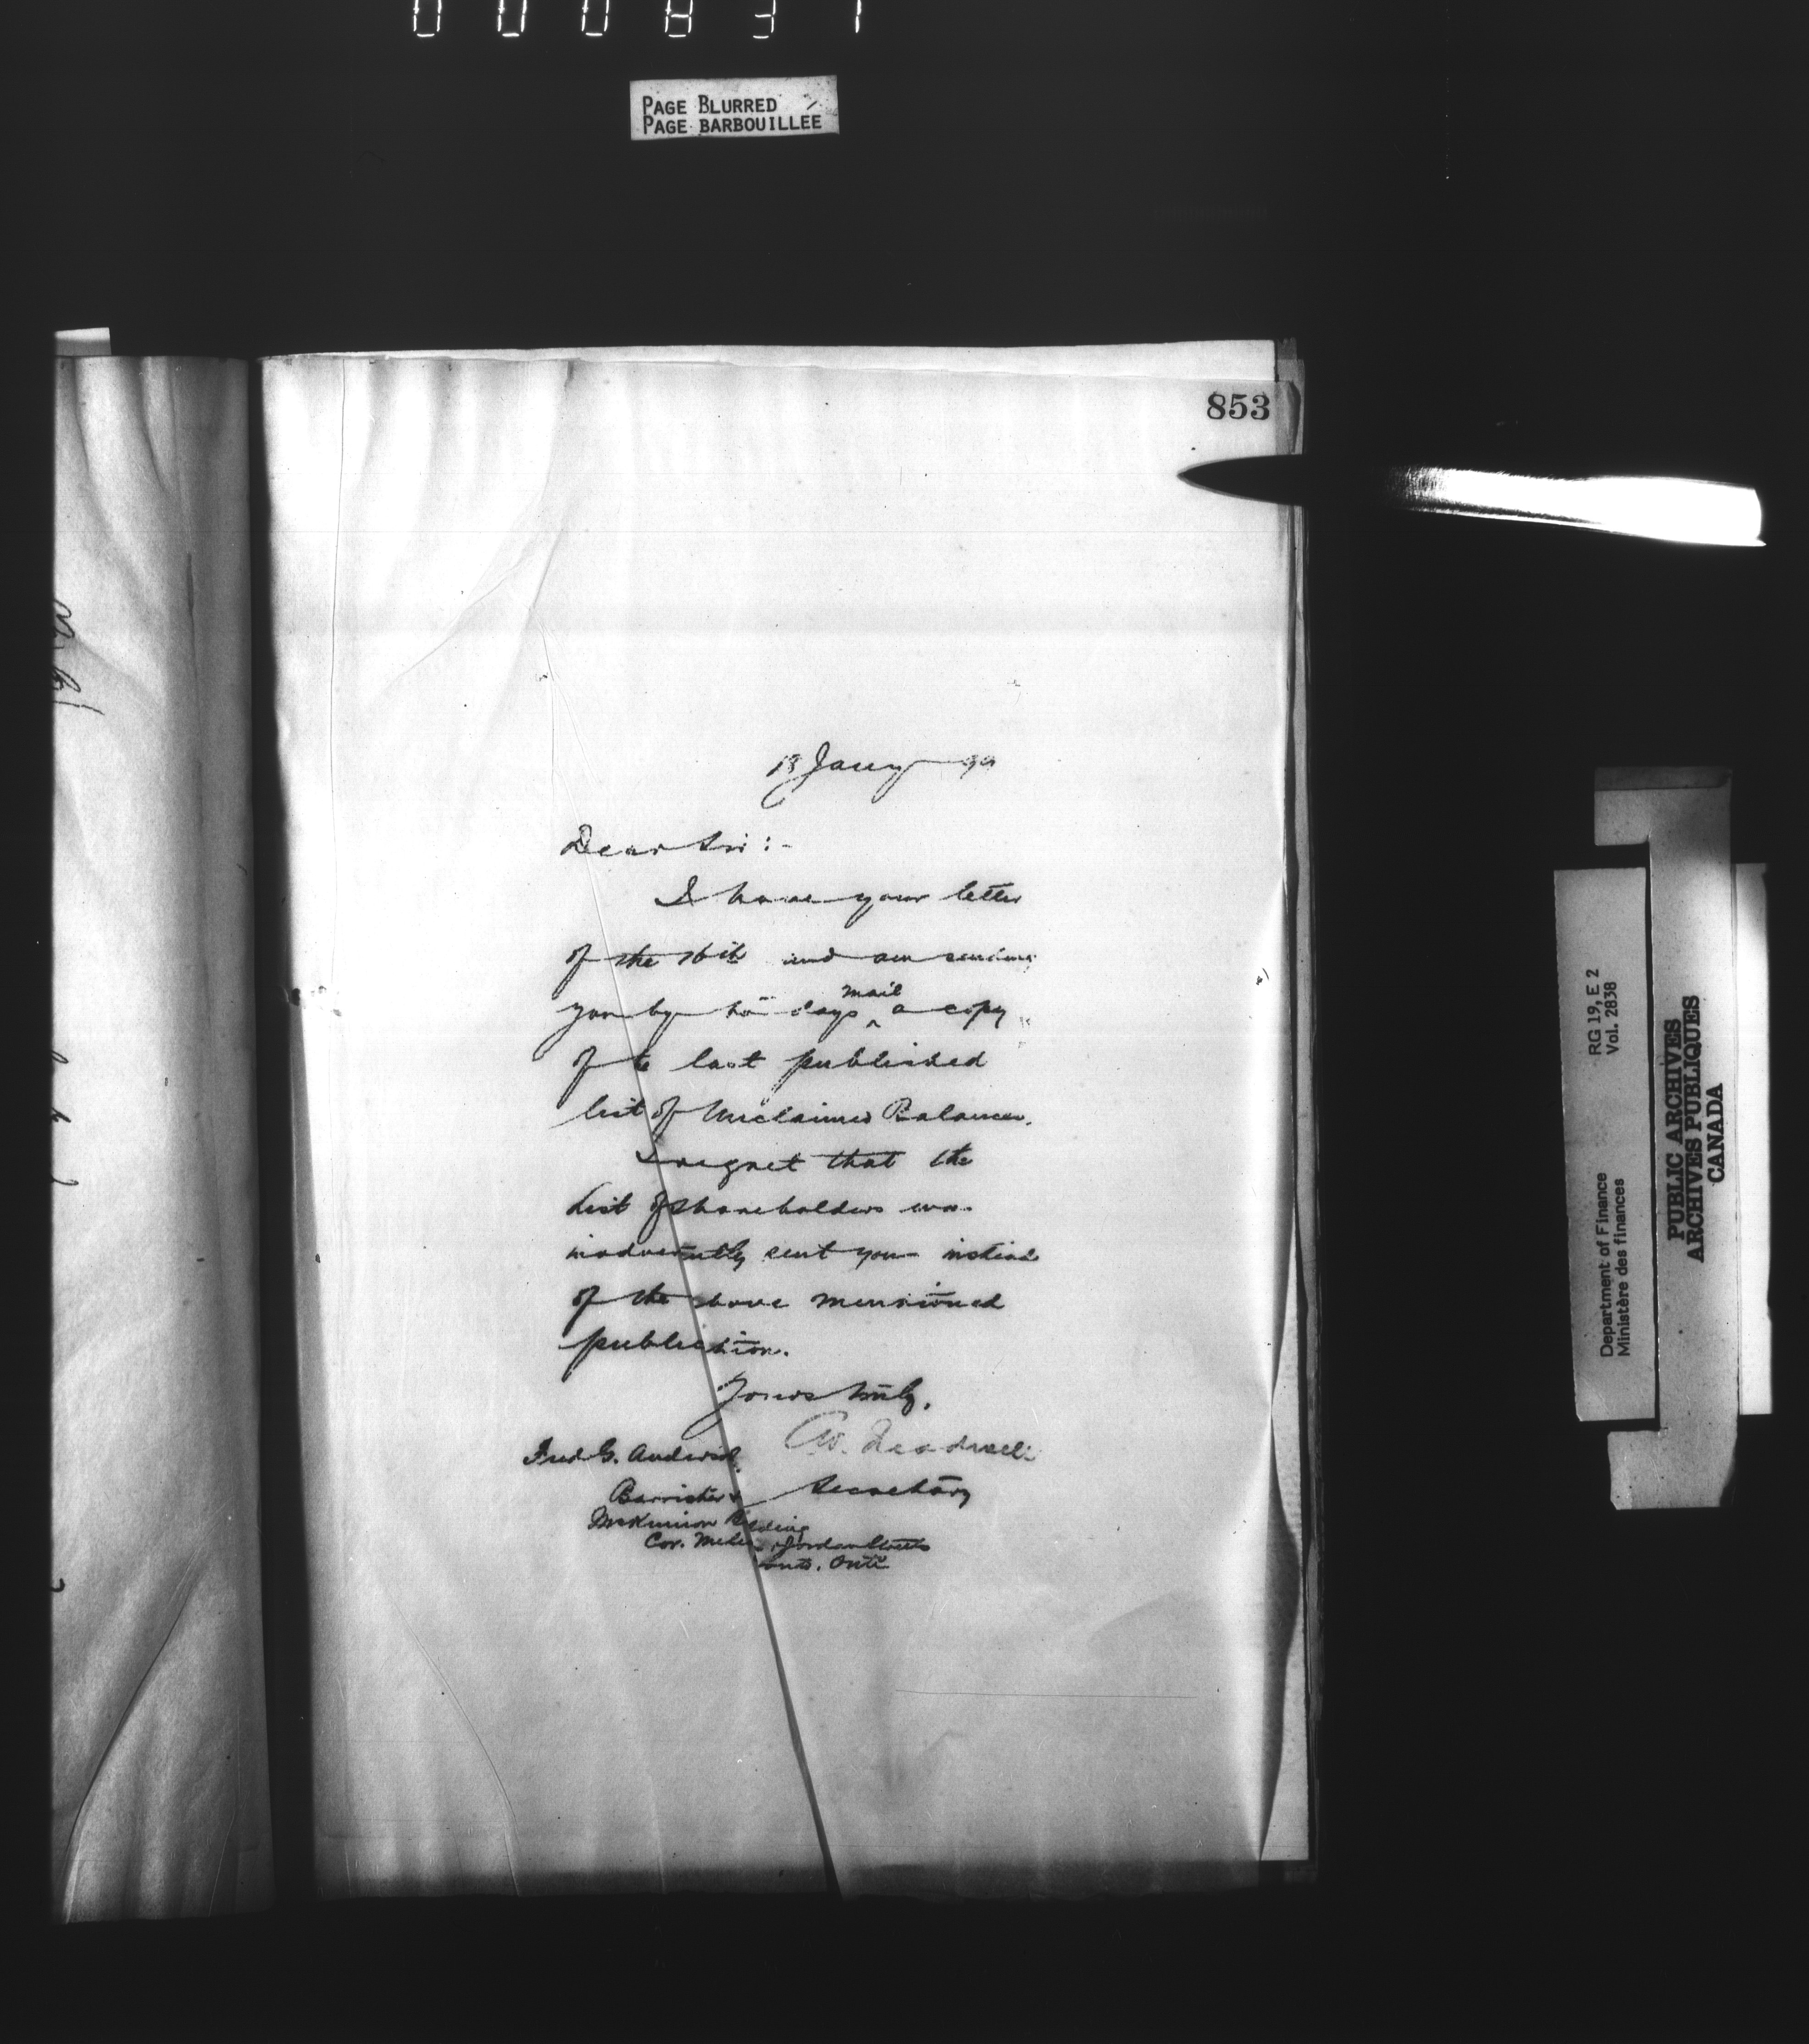 000831
PAGE BLURRED
PAGE BARBOUILLEE
853
18 Jany 90
Dear Sir :-
I have your letter
of the 16th and am sending
you by to days mail a copy
of the last published
list of Unclaimed Balances.
I regret that the
List of Shareholders was
inadvertently sent you instead
of the above mentioned
publication.
Yours truly,
Secretary
Fred G.
Barrister
McKinnon Building
Cor. Jordan Streets
Ont.
RG 19, E 2
Vol. 2838
Department of Finance
Ministère des finances
PUBLIC ARCHIVES
ARCHIVES PUBLIQUES
CANADA